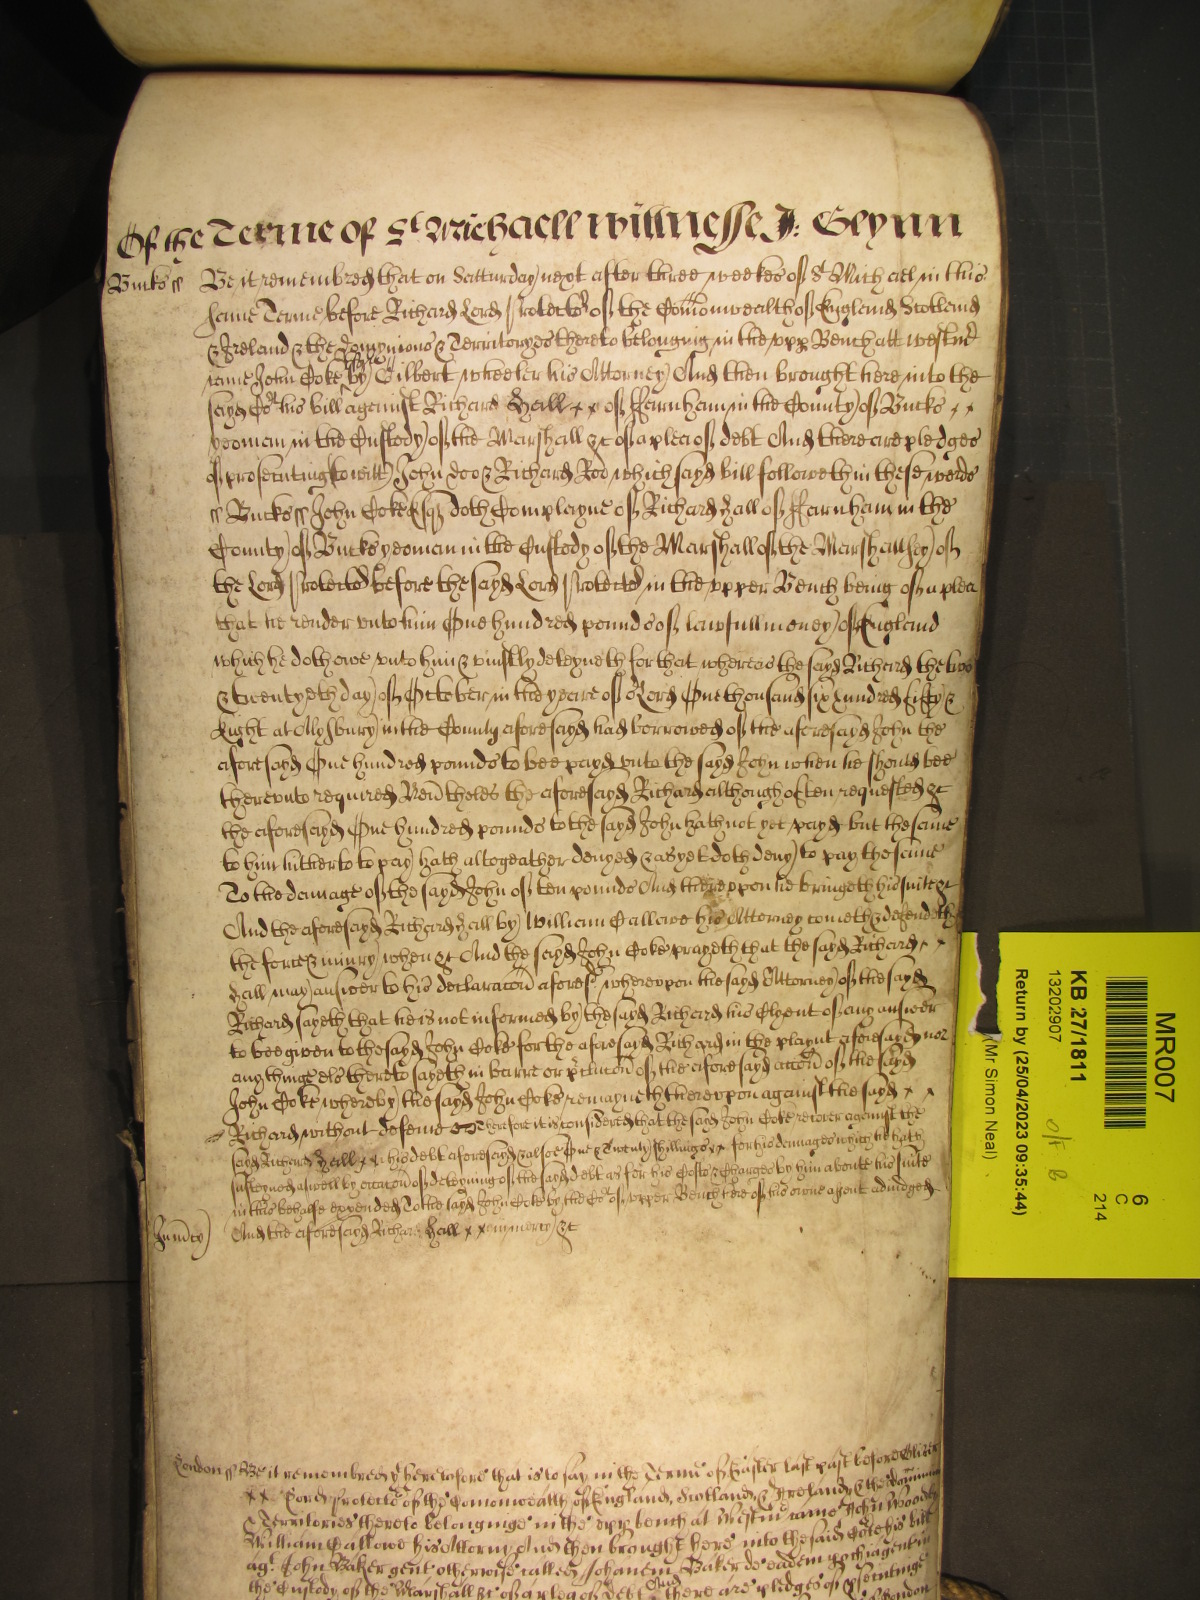 Of the Terme of St Michaell Willnesse J: Glynn
Bucks ss Be it remembred that on Satturday next after three weekes of St Michael in this
same Terme before Richard Lord Protector of the Comonwealth of England Scotland
& Ireland & the Dominyons & Territoryes thereto belonging in the upp Bench att Westmr
came John Coke Esqr by Gilbert Wheeler his Attorney And then brought here into the
sayd Cort his bill against Richard Hall x x of Farnham in the County of Bucks x x
yeoman in the Custody of the Marshall &c of a plea of debt And there are pledges
of prosecuting to witt John Doo & Richard Roo which sayd bill followeth in these words
ss Bucks ss John Coke Esqr doth Complayne of Richard Hall of Farnham in the
County of Bucks yeoman in the Custody of the Marshall of the Marshallsey of
the Lord Protector before the sayd Lord Protector in the upper Bench being of a plea
that he render unto him One hundred pounds of lawfull money of England
which he doth owe unto him & uniustly deteyneth for that whereas the sayd Richard the two
& twentyeth day of October in the yeare of or Lord One thousand six hundred fifty &
Eight at Aylsbury in the County aforesayd had borrowed of the aforesayd John the
aforesayd One hundred pounds to bee payd unto the sayd John when he should bee
thereunto required Neverthelesse the aforesayd Richard although often requested &c
the aforesayd One hundred pounds to the sayd John hath not yet payd but the same
to him hitherto to pay hath altogeather denyed & as yet doth deny to pay the same
To the damage of the sayd John of ten pounds And thereuppon he bringeth his suite &c
And the aforesayd Richard Hall by William Callowe his Attorney cometh & defendeth
the force & iniury when &c And the sayd John Coke prayeth that the sayd Richard x x
Hall may answer to his declaracon aforesd whereupon the sayd Attorney of the sayd
Richard sayeth that he is not informed by the sayd Richard his Clyent of any answer
to bee given to the sayd John Coke for the aforesayd Richard in the playnt aforesayd nor
any thinge els thereto sayeth in barre or preclusion of the aforesayd accon of the sayd
John Coke whereby the sayd John Coke remayneth thereupon against the sayd x x
Richard without defence Therefore it is considered that the sayd John Coke recover against the
sayd Richard Hall x x his debt aforesayd & alsoe One & Twenty shillings x x for his damages which he hath
susteyned aswell by occasion of deteyning of the sayd debt as for his Costs & Charges by him aboute his suite
in this behalfe expended To the sayd John Coke by the Cort of upper Bench here of his owne assent adiudged
And the aforesayd Richard Hall x x in mercy &c
London ss Be it remembred yt heretofore that is to say in the Terme of Easter last past before Oliver
x x Lord Protector of the Comonwealth of England, Scotland, & Ireland, & the Dominions
& Territories thereto belonginge in the upp bench at Westmr came John
William Callowe his Attorny And then brought here into the said Cort his bill
agt John Baker gent otherwise called Johanem Baker de eadem gent in
the Custody of the Marshall &c of a plea of debt And there are pledges of prsecutinge
London
MR007
KB 27/1811
13202907
(Mr Simon Neal)
Return by (25/04/2023 09:35:44)
6
C
214